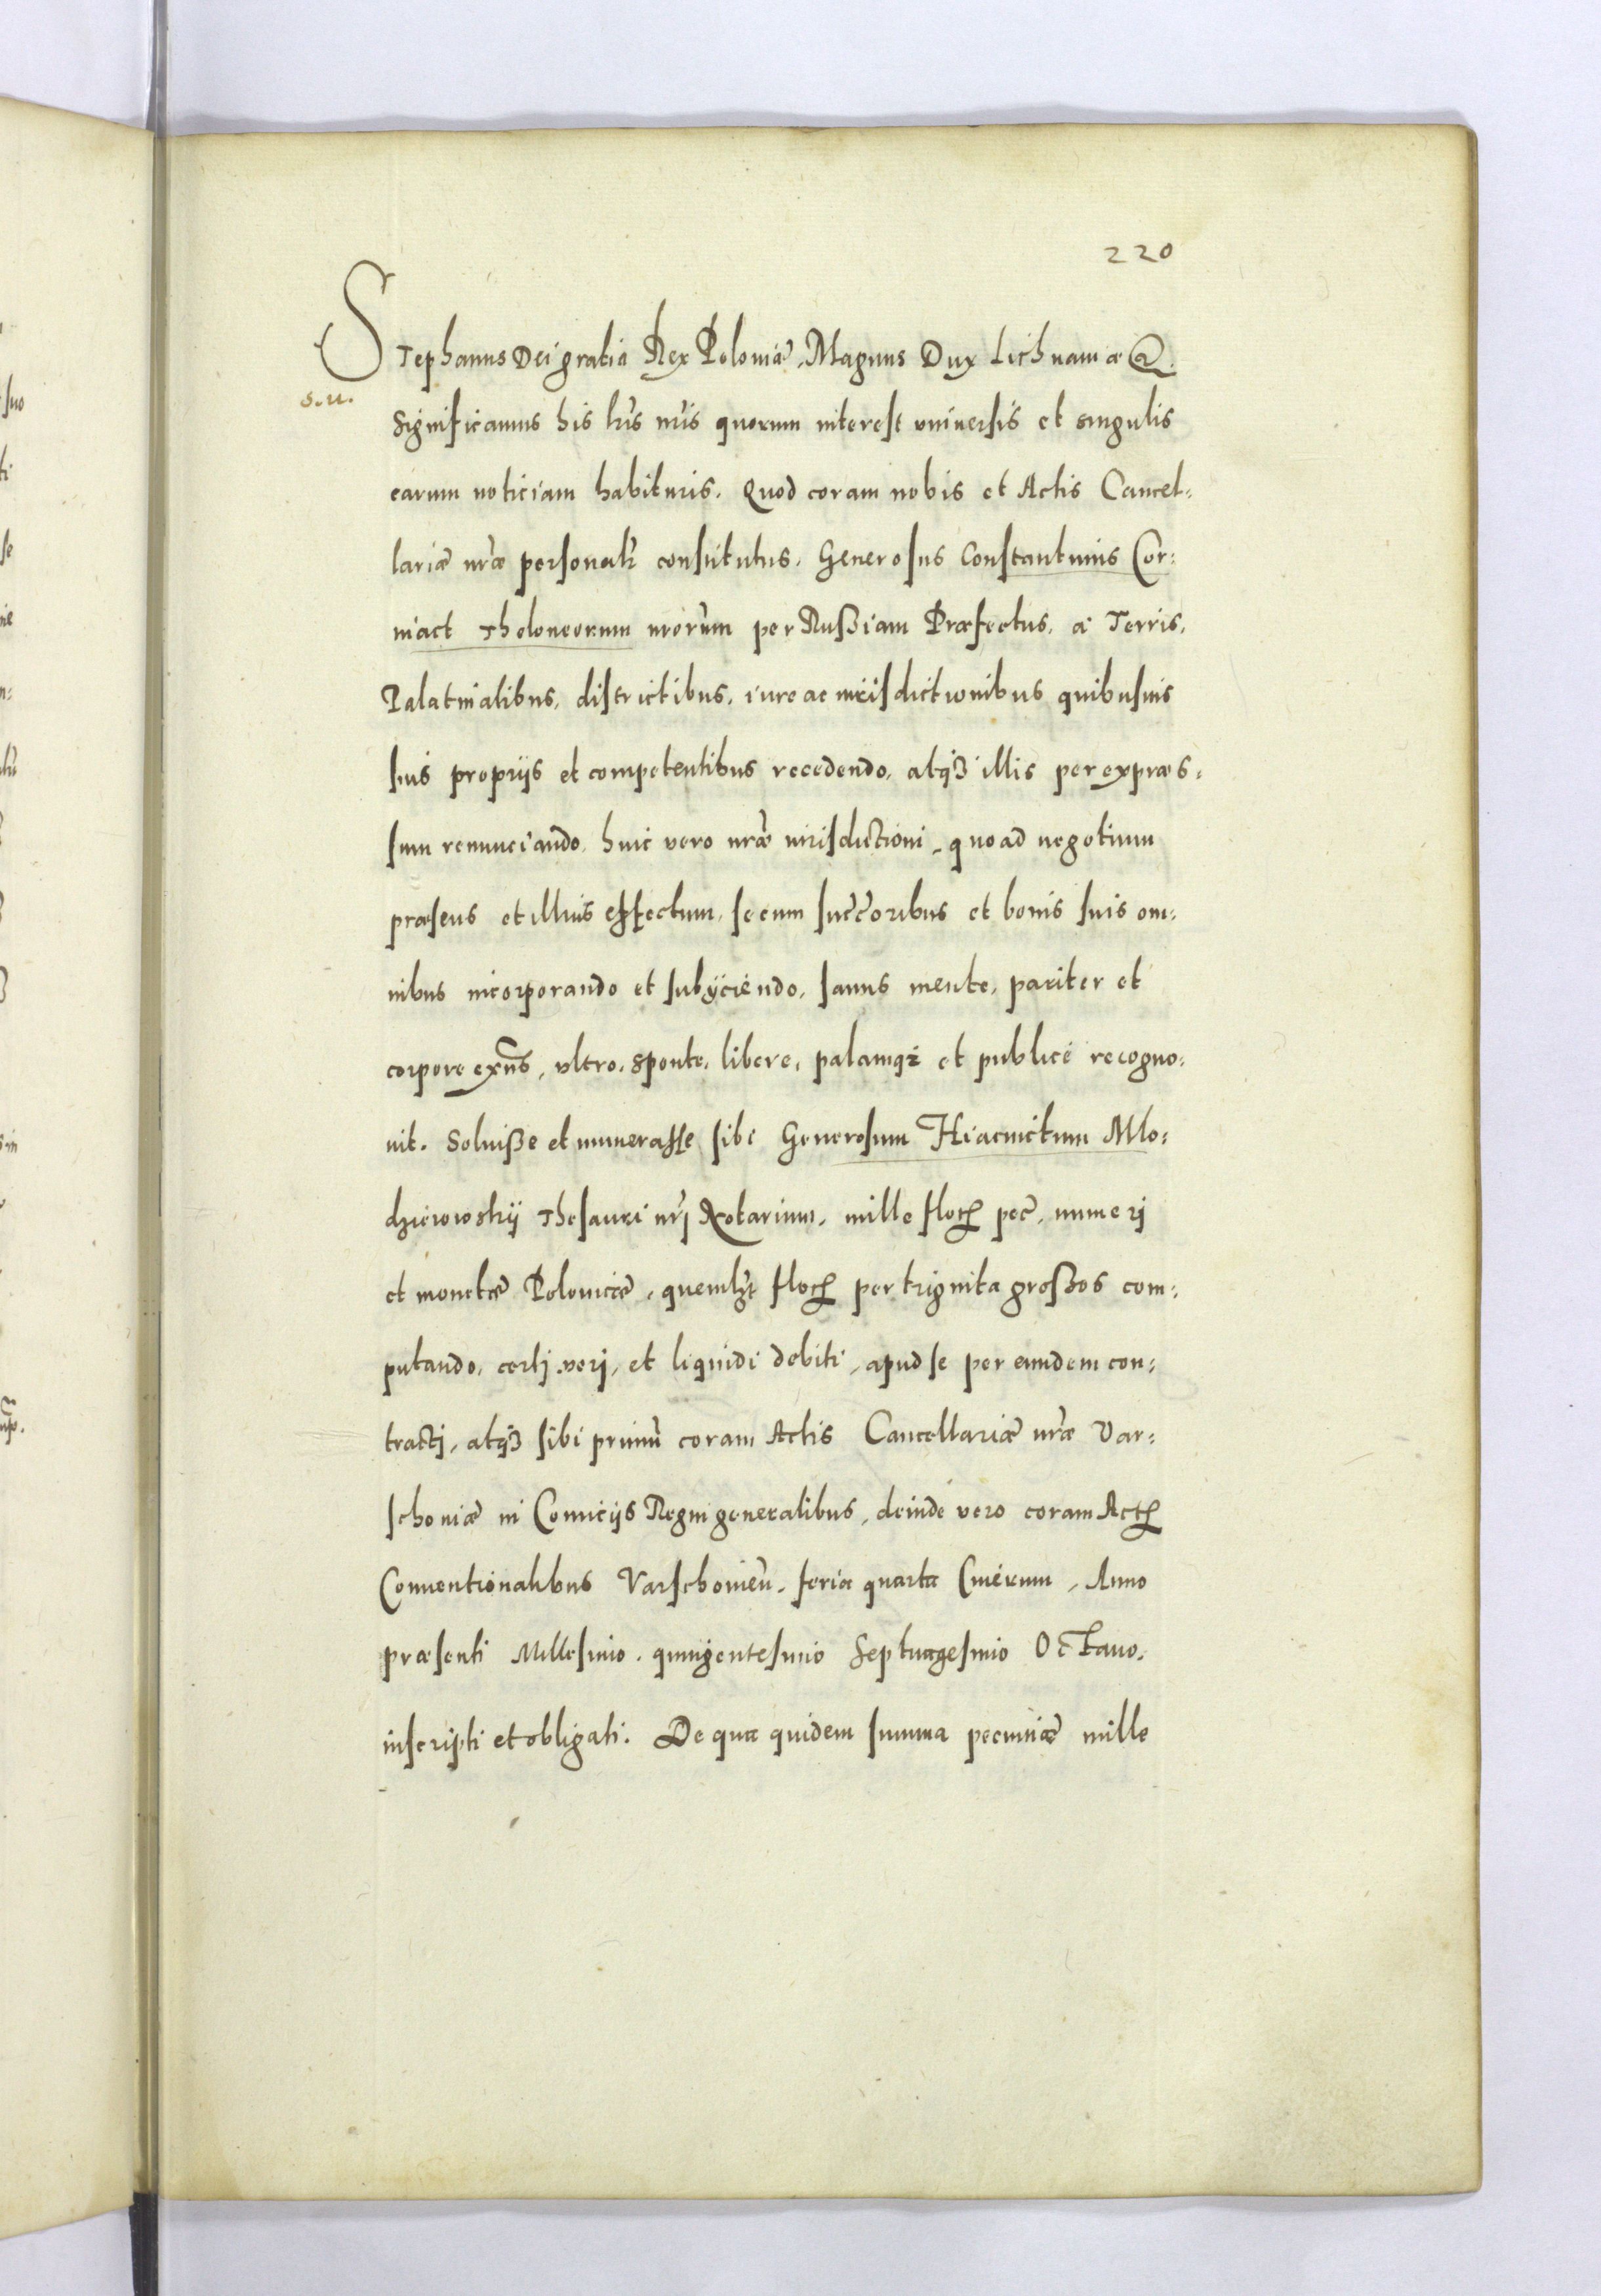 220
Stephanus Dei gratia Rex Poloniæ, Magnus Dux Lithuaniæ &.
s. u.
Significamus his lr̃is nr̃is quorum interest vniversis et singulis
earum noticiam habituris. Quod coram nobis et Actis Cancel=
lariæ nr̃æ personalr̃ constitutus, Generosus Constantinus Cor=
niact Theloneorum nrorũm per Rußiam Præfectus, a Terris,
Palatinatibus, districtibus, iure ac iurisdictionibus quibusuis
suis proprijs et competentibus recedendo, atq̃ illis per expræs=
sum renunciando, huic vero nr̃æ iurisdictioni, quoad negotium
præsens et illius effectum, se cum succ̃oribus et bonis suis om=
nibus incorporando et subijciendo, sanus mente, pariter et
corpore exñs, vltro, sponte, libere, palamq̃ et publicè recogno=
uit. Soluiße et numerasse sibi Generosum Hiacinctum Mlo=
dzieiowskij Thesauri nrj̃ Notarium, mille floꝝ pec̃, numerj
et monetæ Polonicæ, quemlꝫt floꝝ per triginta großos com=
putando, certj, verj, et liquidi debiti, apud se per eundem con=
tractj, atq̃ sibi primũ coram Actis Cancellariæ nr̃æ Var=
schoniæ in Comicijs Regni generalibus, deinde vero coram Actꝭ
Conuentionalibus Varschonieñ, feria quarta Cinerum, Anno
præsenti Millesimo, quingentesimo Septuagesimo Octauo,
inscripti et obligati. De qua quidem summa pecuniæ mille